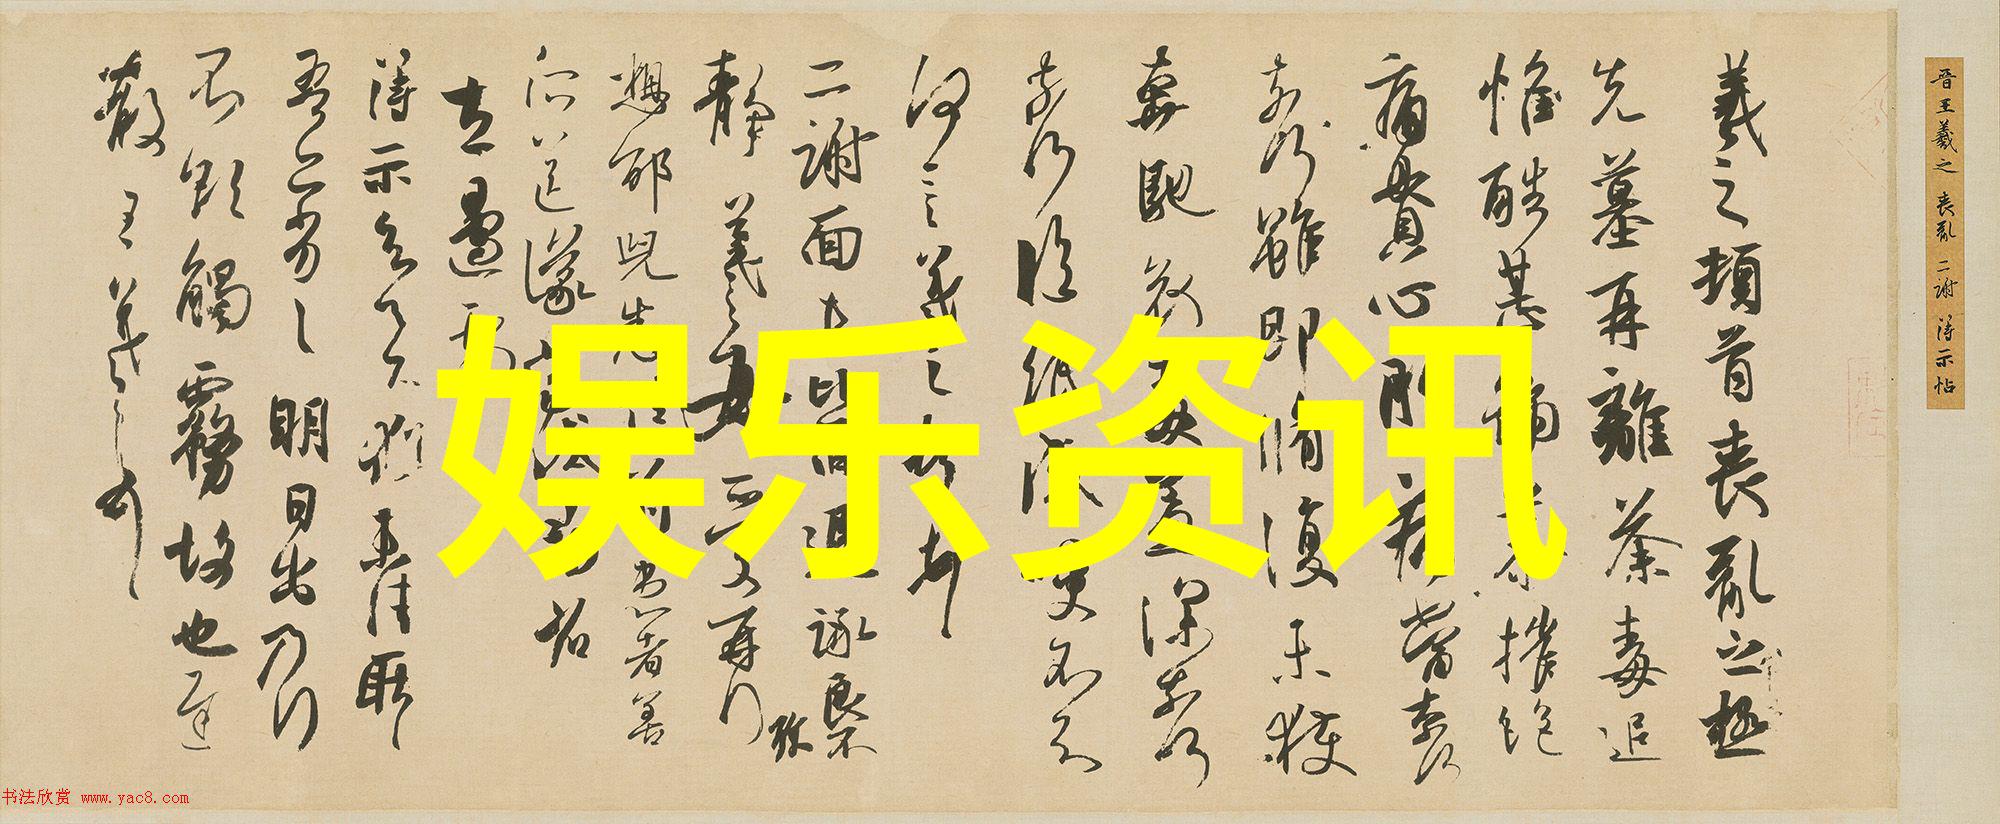 晉王羲之 喪亂 二謝 得示帖
羲之頓首喪亂之極
先墓再離荼毒追
惟酷甚號慕摧絕
痛貫心肝痛當奈何
奈何雖即脩復未獲
奔馳哀毒益深奈何
奈何臨紙感哽不知
何言羲之頓首頓首
二謝面未比面遲詠良不
靜羲之女愛再拜
想邵兒悉佳前患者善
所送議當試尋省
左邊劇
得示知足下猶未佳耿耿
吾亦劣劣明日出乃行
不欲觸霧故也遲
散王羲之頓首
娱乐资讯
书法欣赏 www.yac8.com